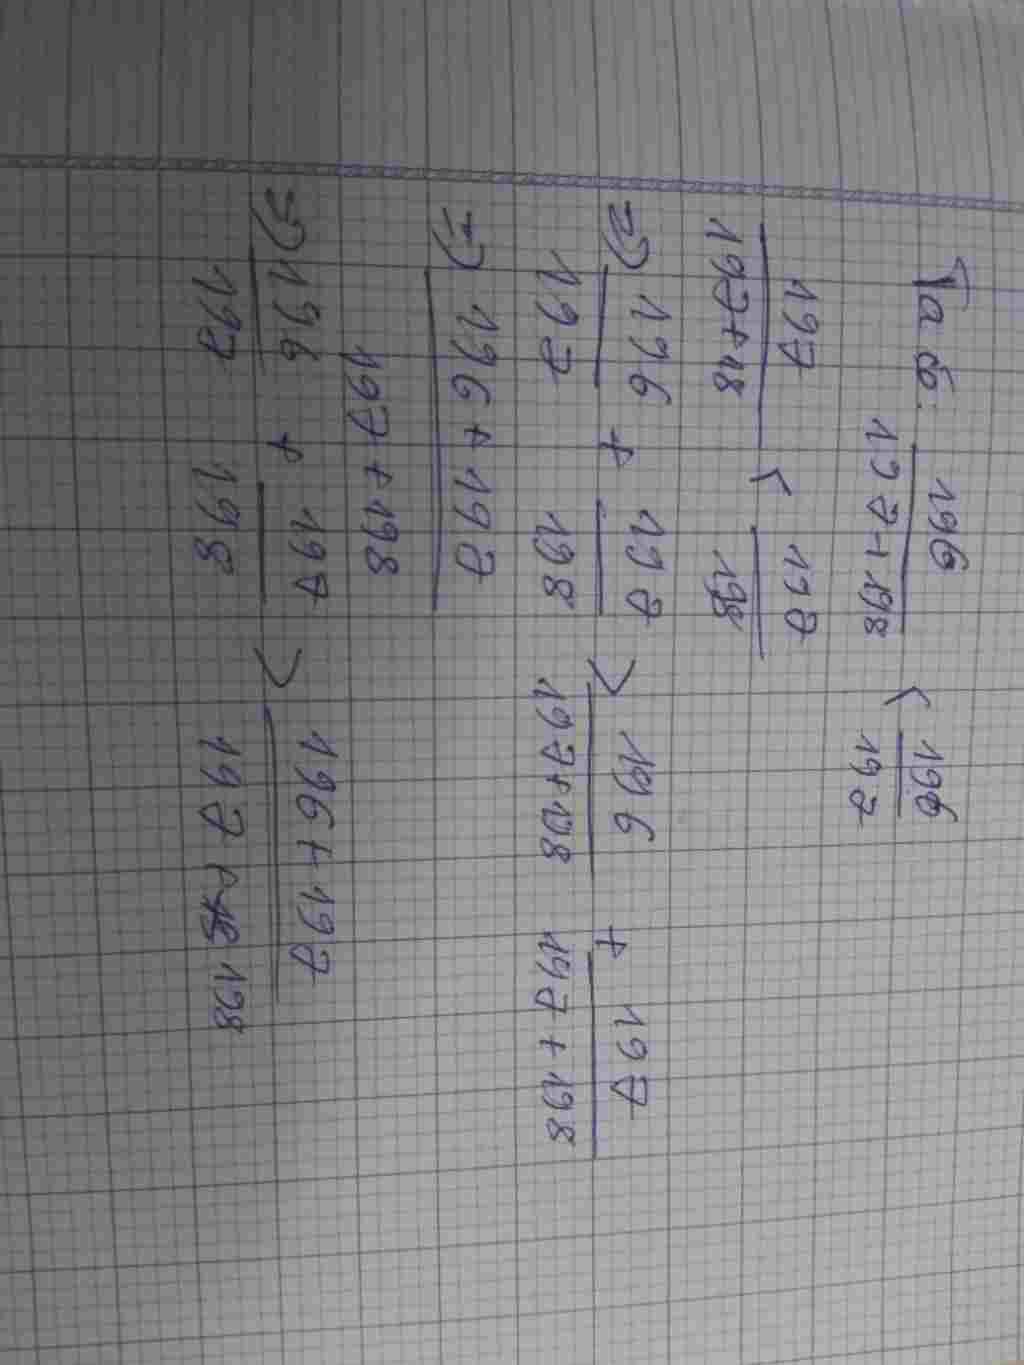 Ta có: 196/197+198 < 196/197
197/197+198 < 197/198
=) 196/197 + 197/198 > 196/197+198 + 197/197+198
=) 196+197/197+198
=) 196/197 + 197/198 > 196+197/197+198